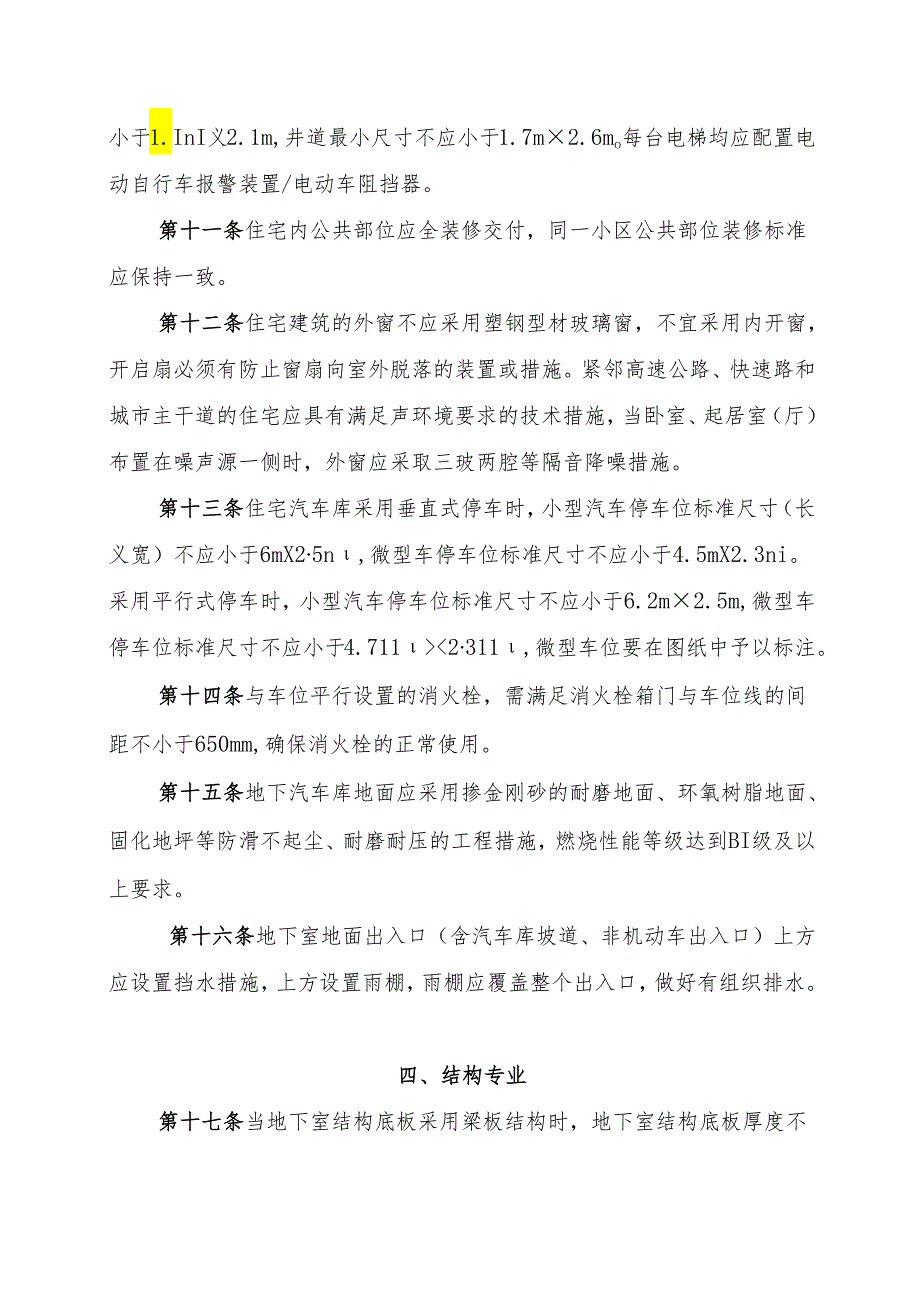 小于1.InI义2.1m,井道最小尺寸不应小于1.7m×2.6mo每台电梯均应配置电
动自行车报警装置/电动车阻挡器。
第十一条住宅内公共部位应全装修交付，同一小区公共部位装修标准
应保持一致。
第十二条住宅建筑的外窗不应采用塑钢型材玻璃窗，不宜采用内开窗，
开启扇必须有防止窗扇向室外脱落的装置或措施。紧邻高速公路、快速路和
城市主干道的住宅应具有满足声环境要求的技术措施，当卧室、起居室（厅）
布置在噪声源一侧时，外窗应采取三玻两腔等隔音降噪措施。
第十三条住宅汽车库采用垂直式停车时，小型汽车停车位标准尺寸（长
义宽）不应小于6mX2·5nι,微型车停车位标准尺寸不应小于4.5mX2.3ni。
采用平行式停车时，小型汽车停车位标准尺寸不应小于6.2m×2.5m,微型车
停车位标准尺寸不应小于4.711ι><2·311ι,微型车位要在图纸中予以标注。
第十四条与车位平行设置的消火栓，需满足消火栓箱门与车位线的间
距不小于650mm,确保消火栓的正常使用。
第十五条地下汽车库地面应采用掺金刚砂的耐磨地面、环氧树脂地面、
固化地坪等防滑不起尘、耐磨耐压的工程措施，燃烧性能等级达到BI级及以
上要求。
第十六条地下室地面出入口（含汽车库坡道、非机动车出入口）上方
应设置挡水措施，上方设置雨棚，雨棚应覆盖整个出入口，做好有组织排水。
四、结构专业
第十七条当地下室结构底板采用梁板结构时，地下室结构底板厚度不